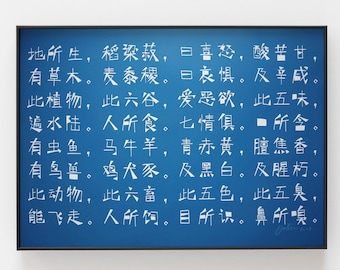 地所生，
有草木。
此植物，
遍水陆。
有虫鱼，
有鸟兽。
此动物，
能飞走。
稻粱菽，
麦黍稷。
此六谷，
人所食。
马牛羊，
鸡犬豕。
此六畜，
人所饲。
曰喜怒，
曰哀惧。
爱恶欲，
七情俱。
青赤黄，
及黑白。
此五色，
目所识。
酸苦甘，
及辛咸。
此五味，
口所含。
膻焦香，
及腥朽。
此五臭，
鼻所嗅。